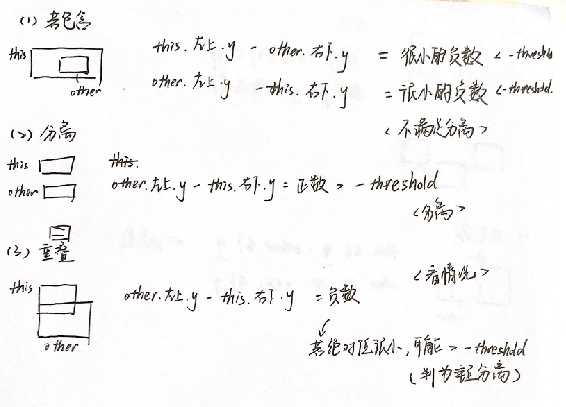 (1) 若包含
this
other
this.左上.y - other.右下.y = 很小的负数 < -threshold
other.左上.y - this.右下.y = 很小的负数 < -threshold.
<不满足分离>
(2) 分离
this
other
other.左上.y - this.右下.y = 正数 > -threshold
<分离>
(3) 重叠
this
other
other.左上.y - this.右下.y = 负数
<看情况>
若绝对值很小,可能 > -threshold
(判为垂直分离)